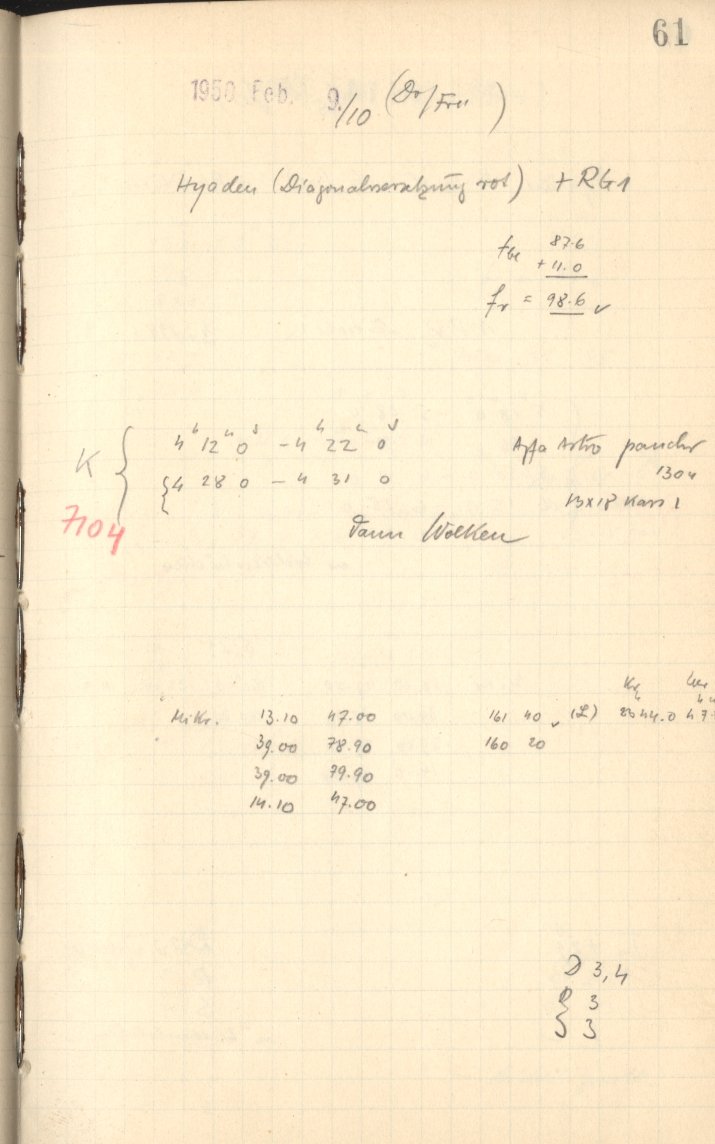 61
1950 Feb. 9./10 (Dr/Fru)
Hyaden (Diagonalversetzung rot) + RG1
fbl 87.6
+ 11.0
fr = 98.6 ✓
K { 4h 12m 0s – 4h 22m 0s
{ 4 28 0 – 4 31 0
Agfa Astro panchr
1304
13x18 Kass 1
7104
dann Wolken
Kr
MiKr. 13.10 47.00 161 40 ✓ (L) 23 44.0 47
39.00 78.90 160 20
39.00 79.90
14.10 47.00
D 3,4
3
3